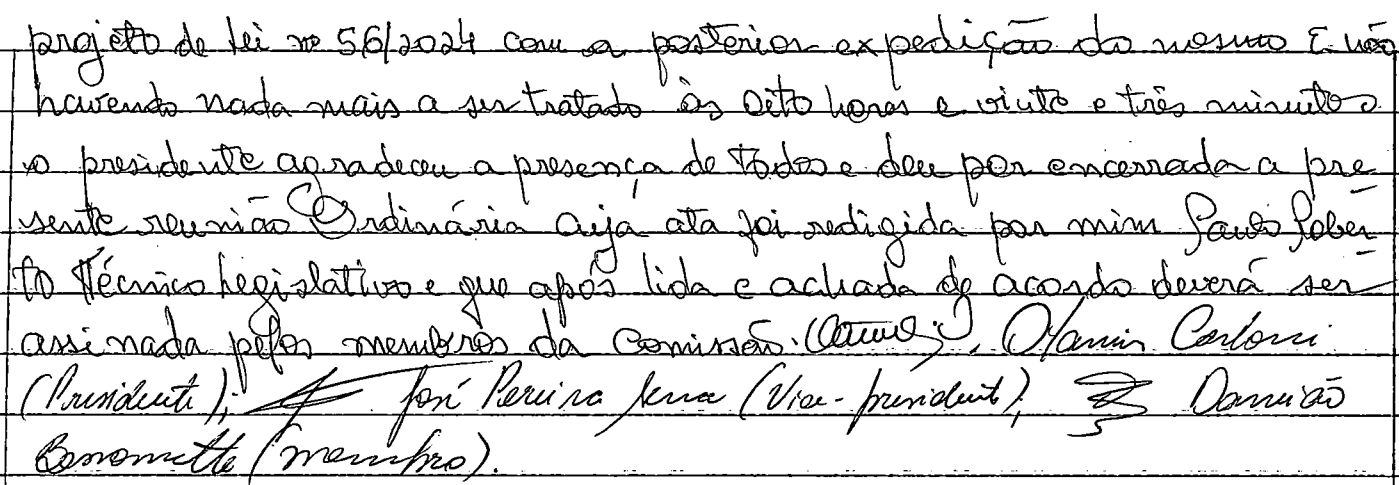 projeto de Lei nº 56/2024 com a posterior expedição do mesmo E não
havendo nada mais a ser tratado às oito horas e vinte e três minutos
o presidente agradeceu a presença de todos e deu por encerrada a pre
sente reunião Ordinária cuja ata foi redigida por mim Paulo Rober
to Técnico Legislativo e que após lida e achada de acordo deverá ser
assinada pelos membros da Comissão. Otamir Carloni
(Presidente); José Pereira Sena (Vice-presidente), Damião
Bonomette (membro).